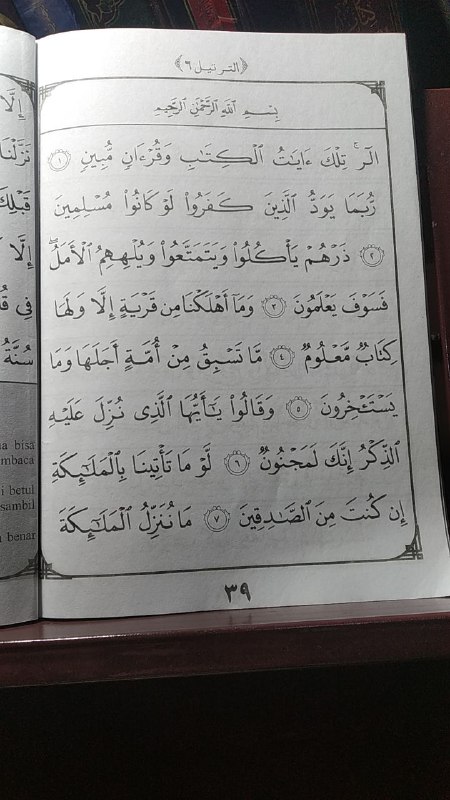 ﴿الترتيل ٦﴾
بِسْمِ ٱللَّهِ ٱلرَّحْمَٰنِ ٱلرَّحِيمِ
الٓرۚ تِلْكَ ءَايَٰتُ ٱلْكِتَٰبِ وَقُرْءَانٍ مُّبِينٍ ١
رُّبَمَا يَوَدُّ ٱلَّذِينَ كَفَرُوا۟ لَوْ كَانُوا۟ مُسْلِمِينَ
٢ ذَرْهُمْ يَأْكُلُوا۟ وَيَتَمَتَّعُوا۟ وَيُلْهِهِمُ ٱلْأَمَلُۖ
فَسَوْفَ يَعْلَمُونَ ٣ وَمَآ أَهْلَكْنَا مِن قَرْيَةٍ إِلَّا وَلَهَا
كِتَابٌ مَّعْلُومٌ ٤ مَّا تَسْبِقُ مِنْ أُمَّةٍ أَجَلَهَا وَمَا
يَسْتَـْٔخِرُونَ ٥ وَقَالُوا۟ يَٰٓأَيُّهَا ٱلَّذِى نُزِّلَ عَلَيْهِ
ٱلذِّكْرُ إِنَّكَ لَمَجْنُونٌ ٦ لَّوْ مَا تَأْتِينَا بِٱلْمَلَٰٓئِكَةِ
إِن كُنتَ مِنَ ٱلصَّٰدِقِينَ ٧ مَا نُنَزِّلُ ٱلْمَلَٰٓئِكَةَ
٣٩
إِلَّا
نَزَّلْنَا
قَبْلِكَ
إِلَّا
فِى
سُنَّةُ
bisa
mbaca
i betul
sambil
benar